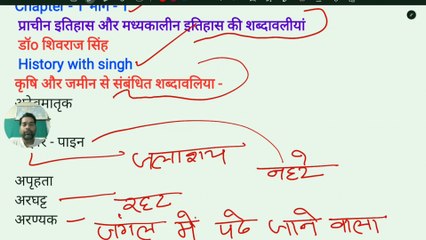 Chapter - 1 भाग - 1
प्राचीन इतिहास और मध्यकालीन इतिहास की शब्दावलीयां
डॉo शिवराज सिंह
History with singh
कृषि और जमीन से संबंधित शब्दावलिया -
- पाइन
जलाशय नहरे
अपृहता
अरघट्ट रहट
अरण्यक जंगल में पढे जाने वाला